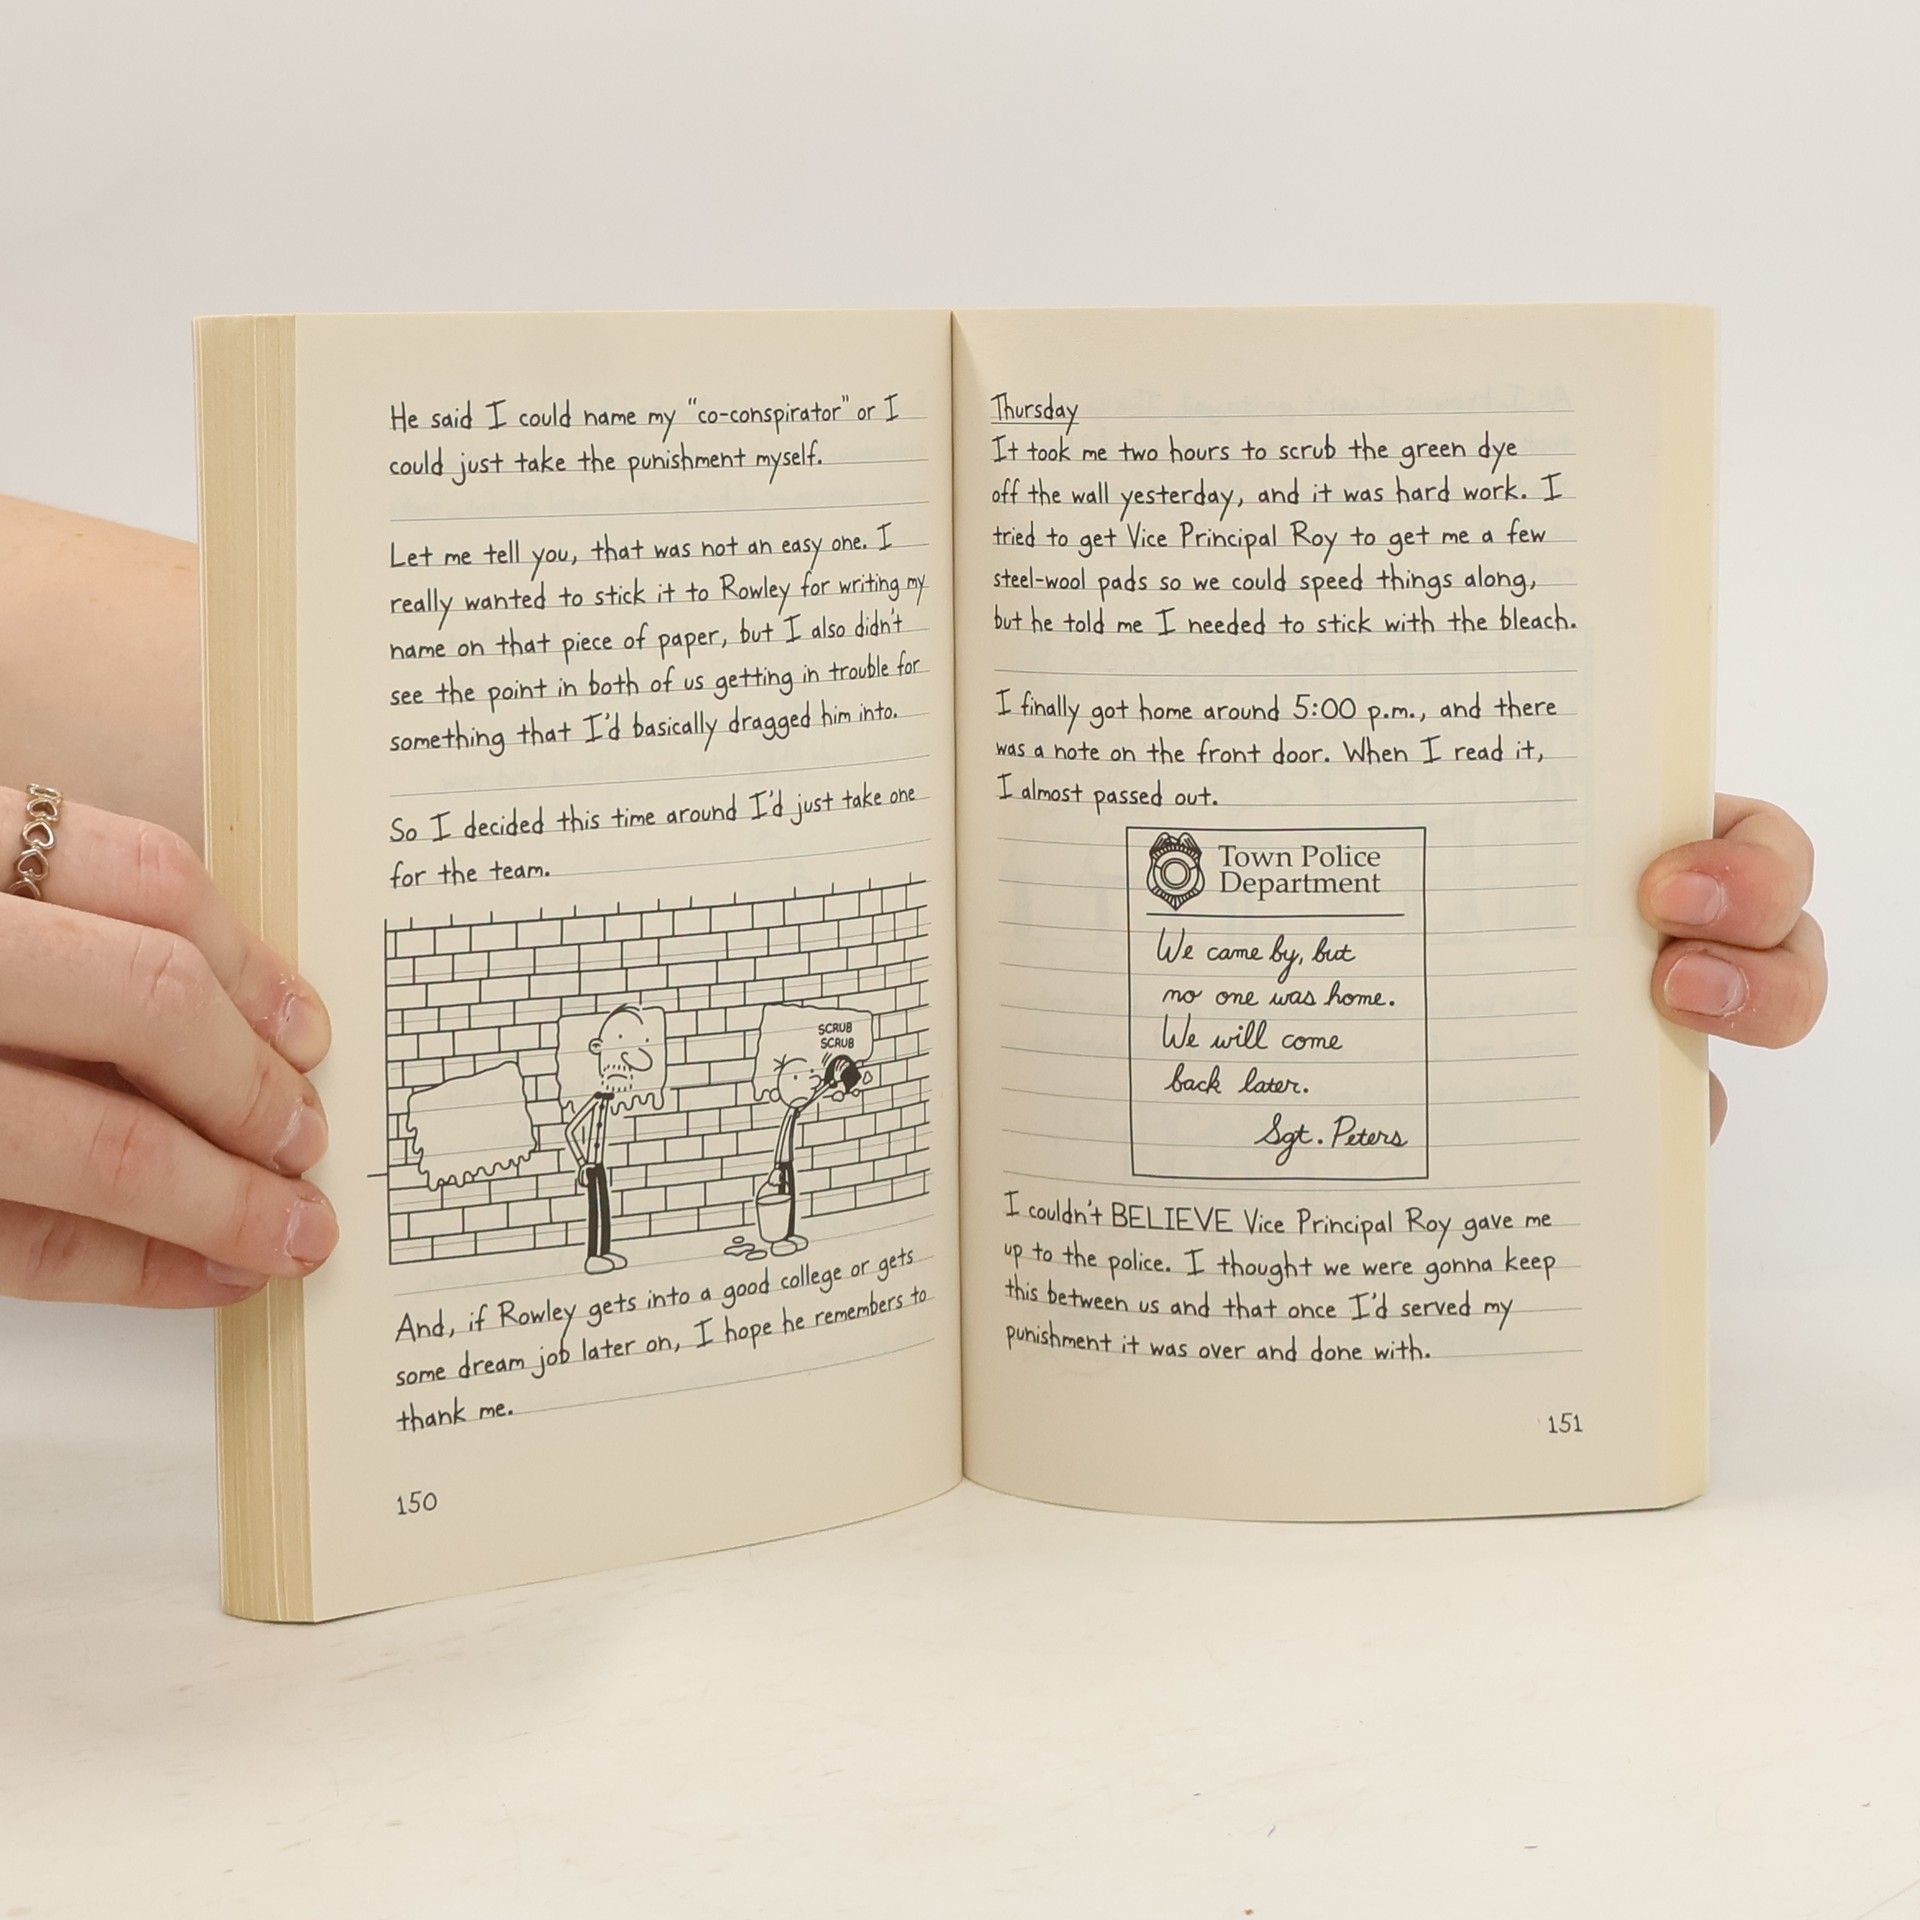 He said I could name my "co-conspirator" or I
could just take the punishment myself.
Let me tell you, that was not an easy one. I
really wanted to stick it to Rowley for writing my
name on that piece of paper, but I also didn't
see the point in both of us getting in trouble for
something that I'd basically dragged him into.
So I decided this time around I'd just take one
for the team.
SCRUB
SCRUB
And, if Rowley gets into a good college or gets
some dream job later on, I hope he remembers to
thank me.
150
Thursday
It took me two hours to scrub the green dye
off the wall yesterday, and it was hard work. I
tried to get Vice Principal Roy to get me a few
steel-wool pads so we could speed things along,
but he told me I needed to stick with the bleach.
I finally got home around 5:00 p.m., and there
was a note on the front door. When I read it,
I almost passed out.
Town Police
Department
We came by, but
no one was home.
We will come
back later.
Sgt. Peters
I couldn't BELIEVE Vice Principal Roy gave me
up to the police. I thought we were gonna keep
this between us and that once I'd served my
punishment it was over and done with.
151